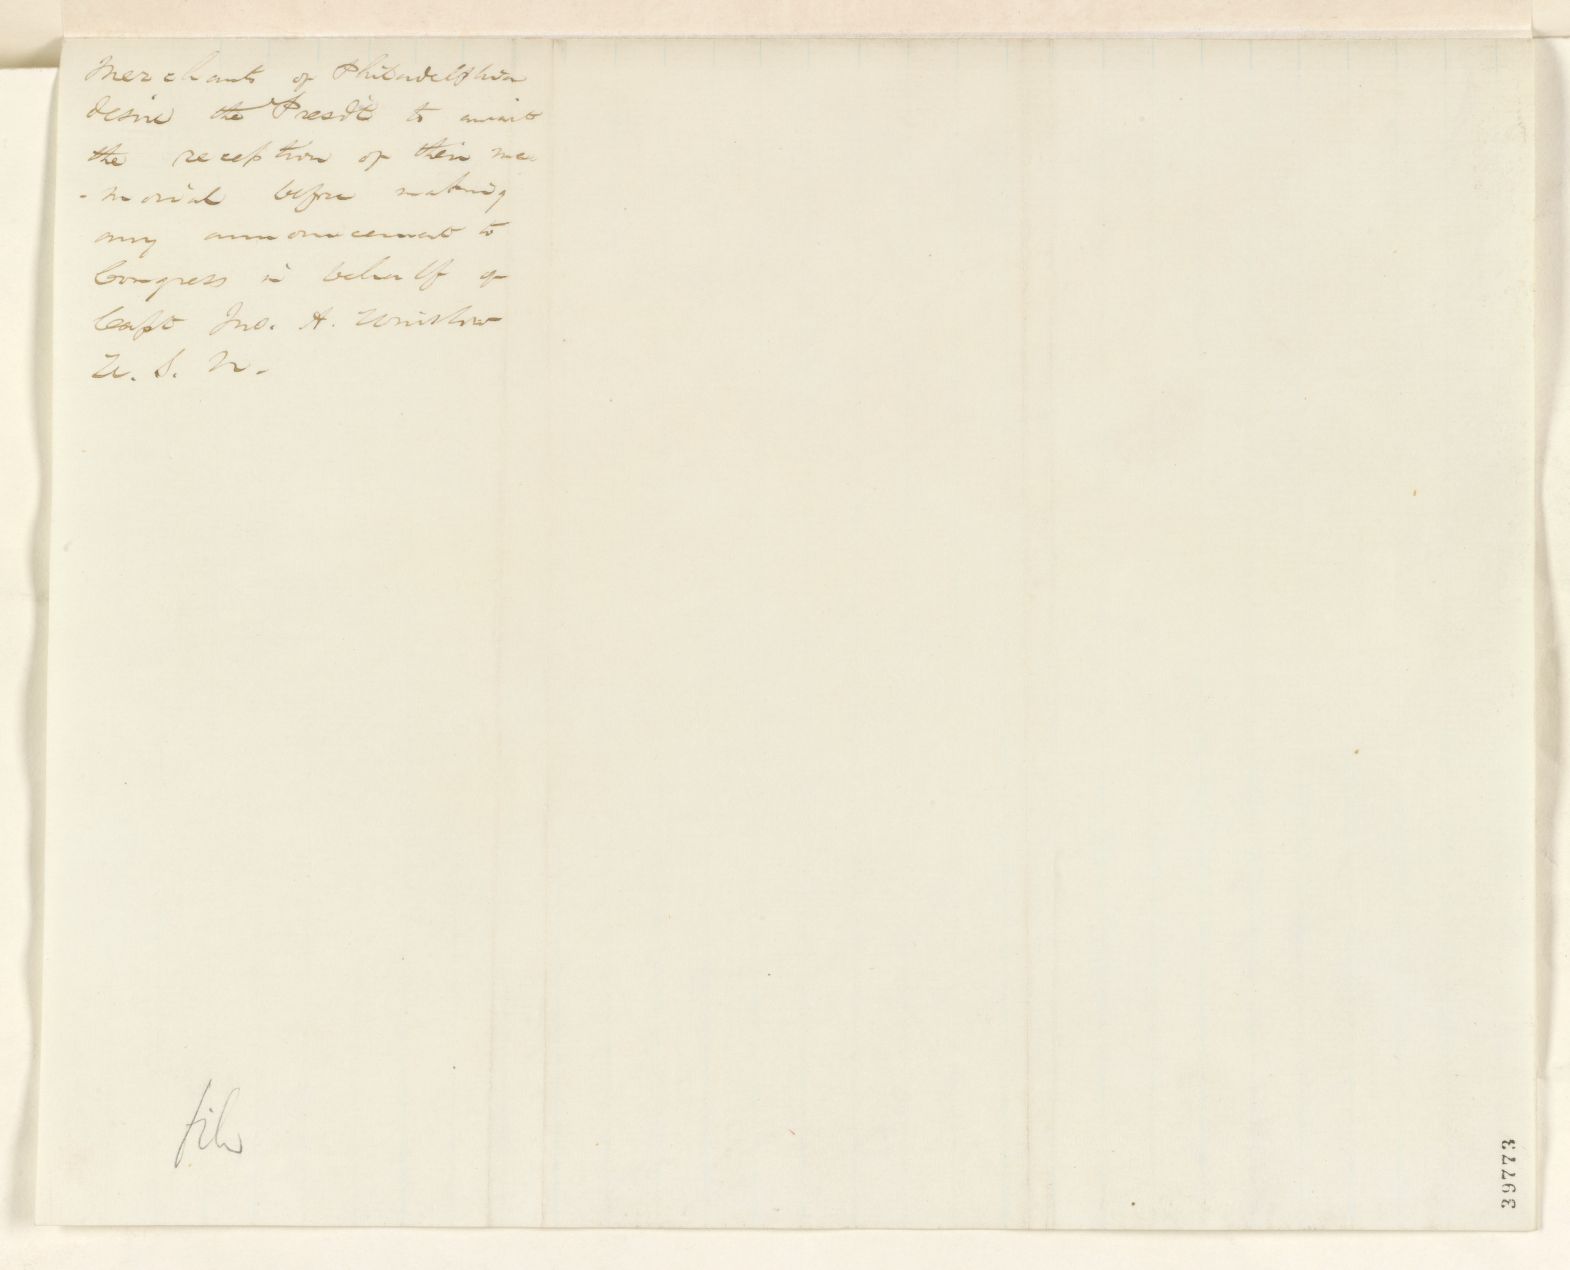 Merchants of Philadelphia
desire the Presdt to await
the reception of their me
-morial before making
any announcement to
Congress in behalf of
Capt Jno. A. Winslow
U. S. N.
file
39773